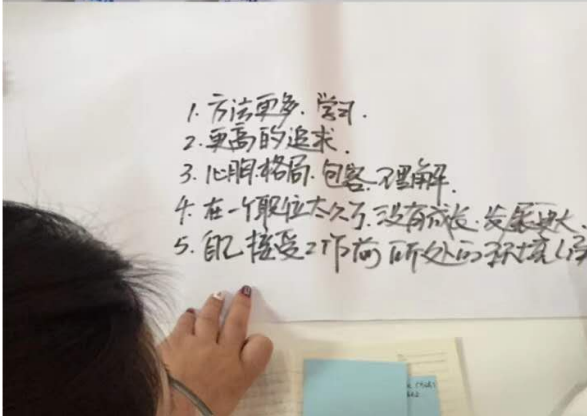 1. 方法更多. 学习.
2. 更高的追求.
3. 心胸.格局.包容.理解.
4. 在一个职位太久了.没有成长.发展更大.
5. 自己接受工作前所处的环境